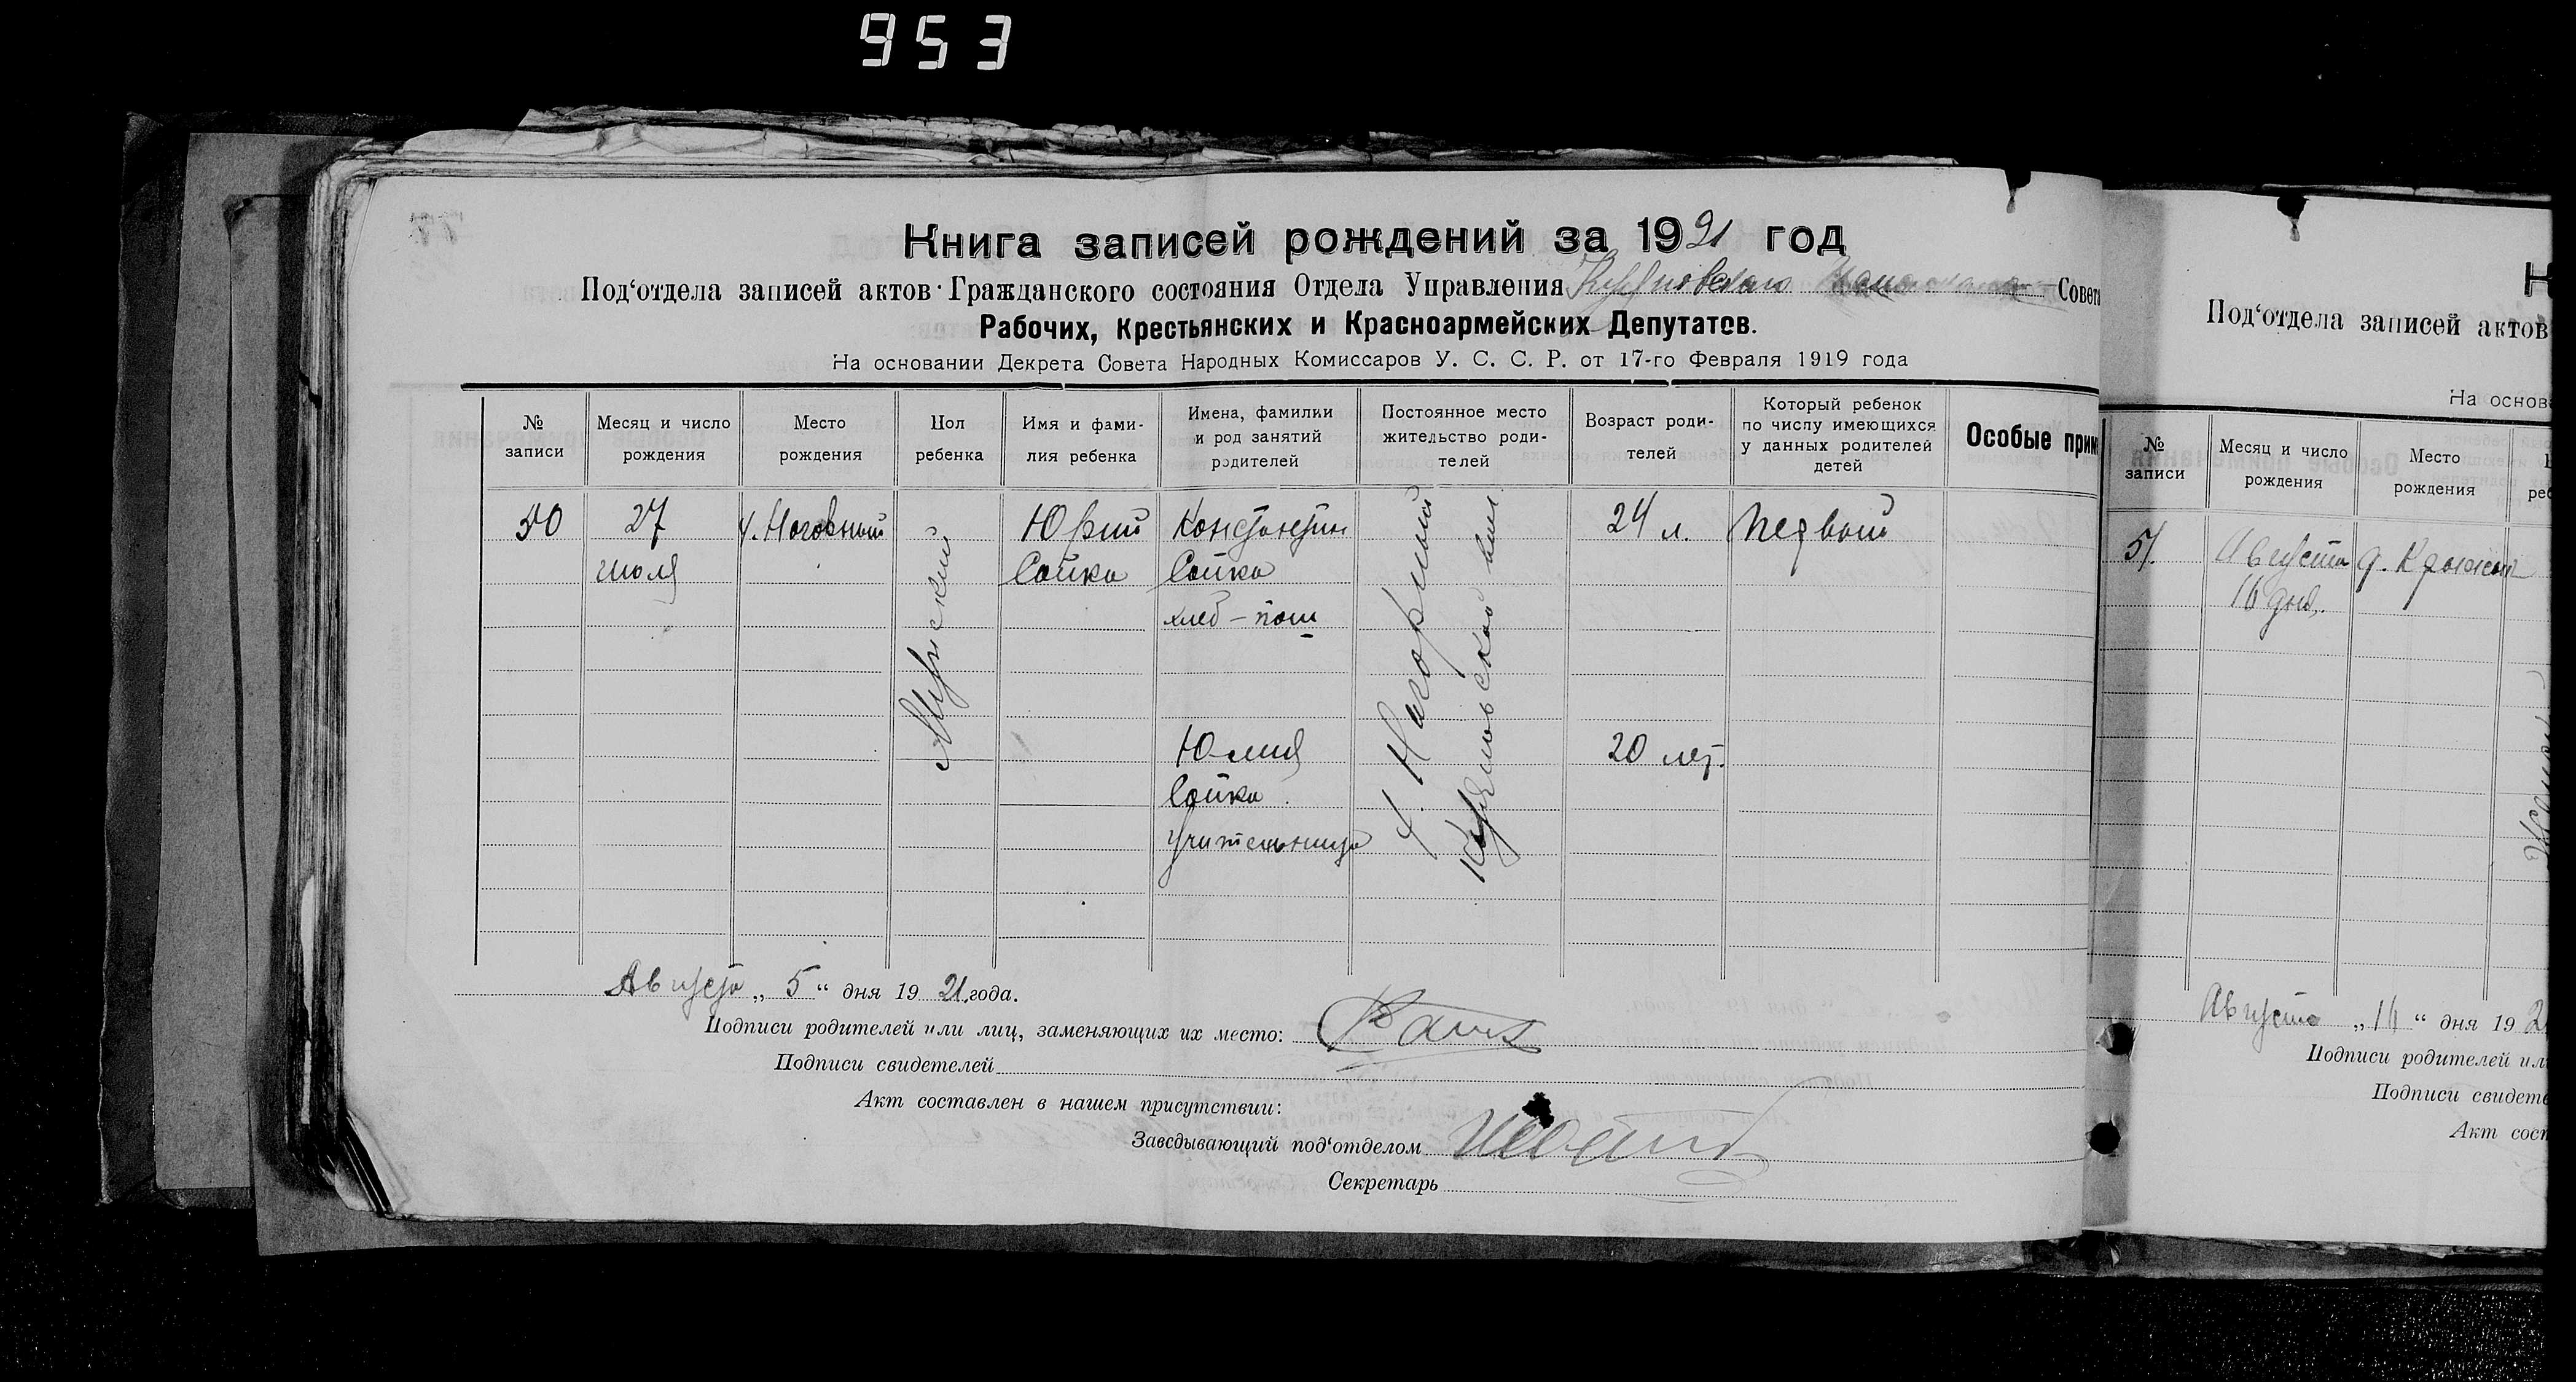 953
Книга записей рождений за 1921 год
Под‘отдела записей актов Гражданского состояния Отдела Управления Совета
Рабочих, Крестьянских и Красноармейских Депутатов.
На основании Декрета Совета Народных Комиссаров У. С. С. Р. от 17-го Февраля 1919 года
№ записи
Месяц и число рождения
Место рождения
Пол ребенка
Имя и фами-
лия ребенка
Имена, фамилии
и род занятий
родителей
Постоянное место
жительство роди-
телей
Возраст роди-
телей
Который ребенок
по числу имеющихся
у данных родителей
детей
Особые прим
50
27
июля
Мужский
Юрий
Сойка
Константин
Сойка
хлеб-паш
Юлия
Сойка
учительница
х. Нагорный
24 л.
20 лет.
Первый
Августа „ 5 “ дня 1921 года.
Подписи родителей или лиц, заменяющих их место:
Подписи свидетелей
Акт составлен в нашем присутствии:
Заведывающий под‘отделом
Секретарь
Н
Под‘отдела записей актов
На основ
№
записи
Месяц и число
рождения
Место
рождения
51.
Августа
16 дня.
Августа „16“ дня 192
Подписи родителей ил
Подписи свидете
Акт сост